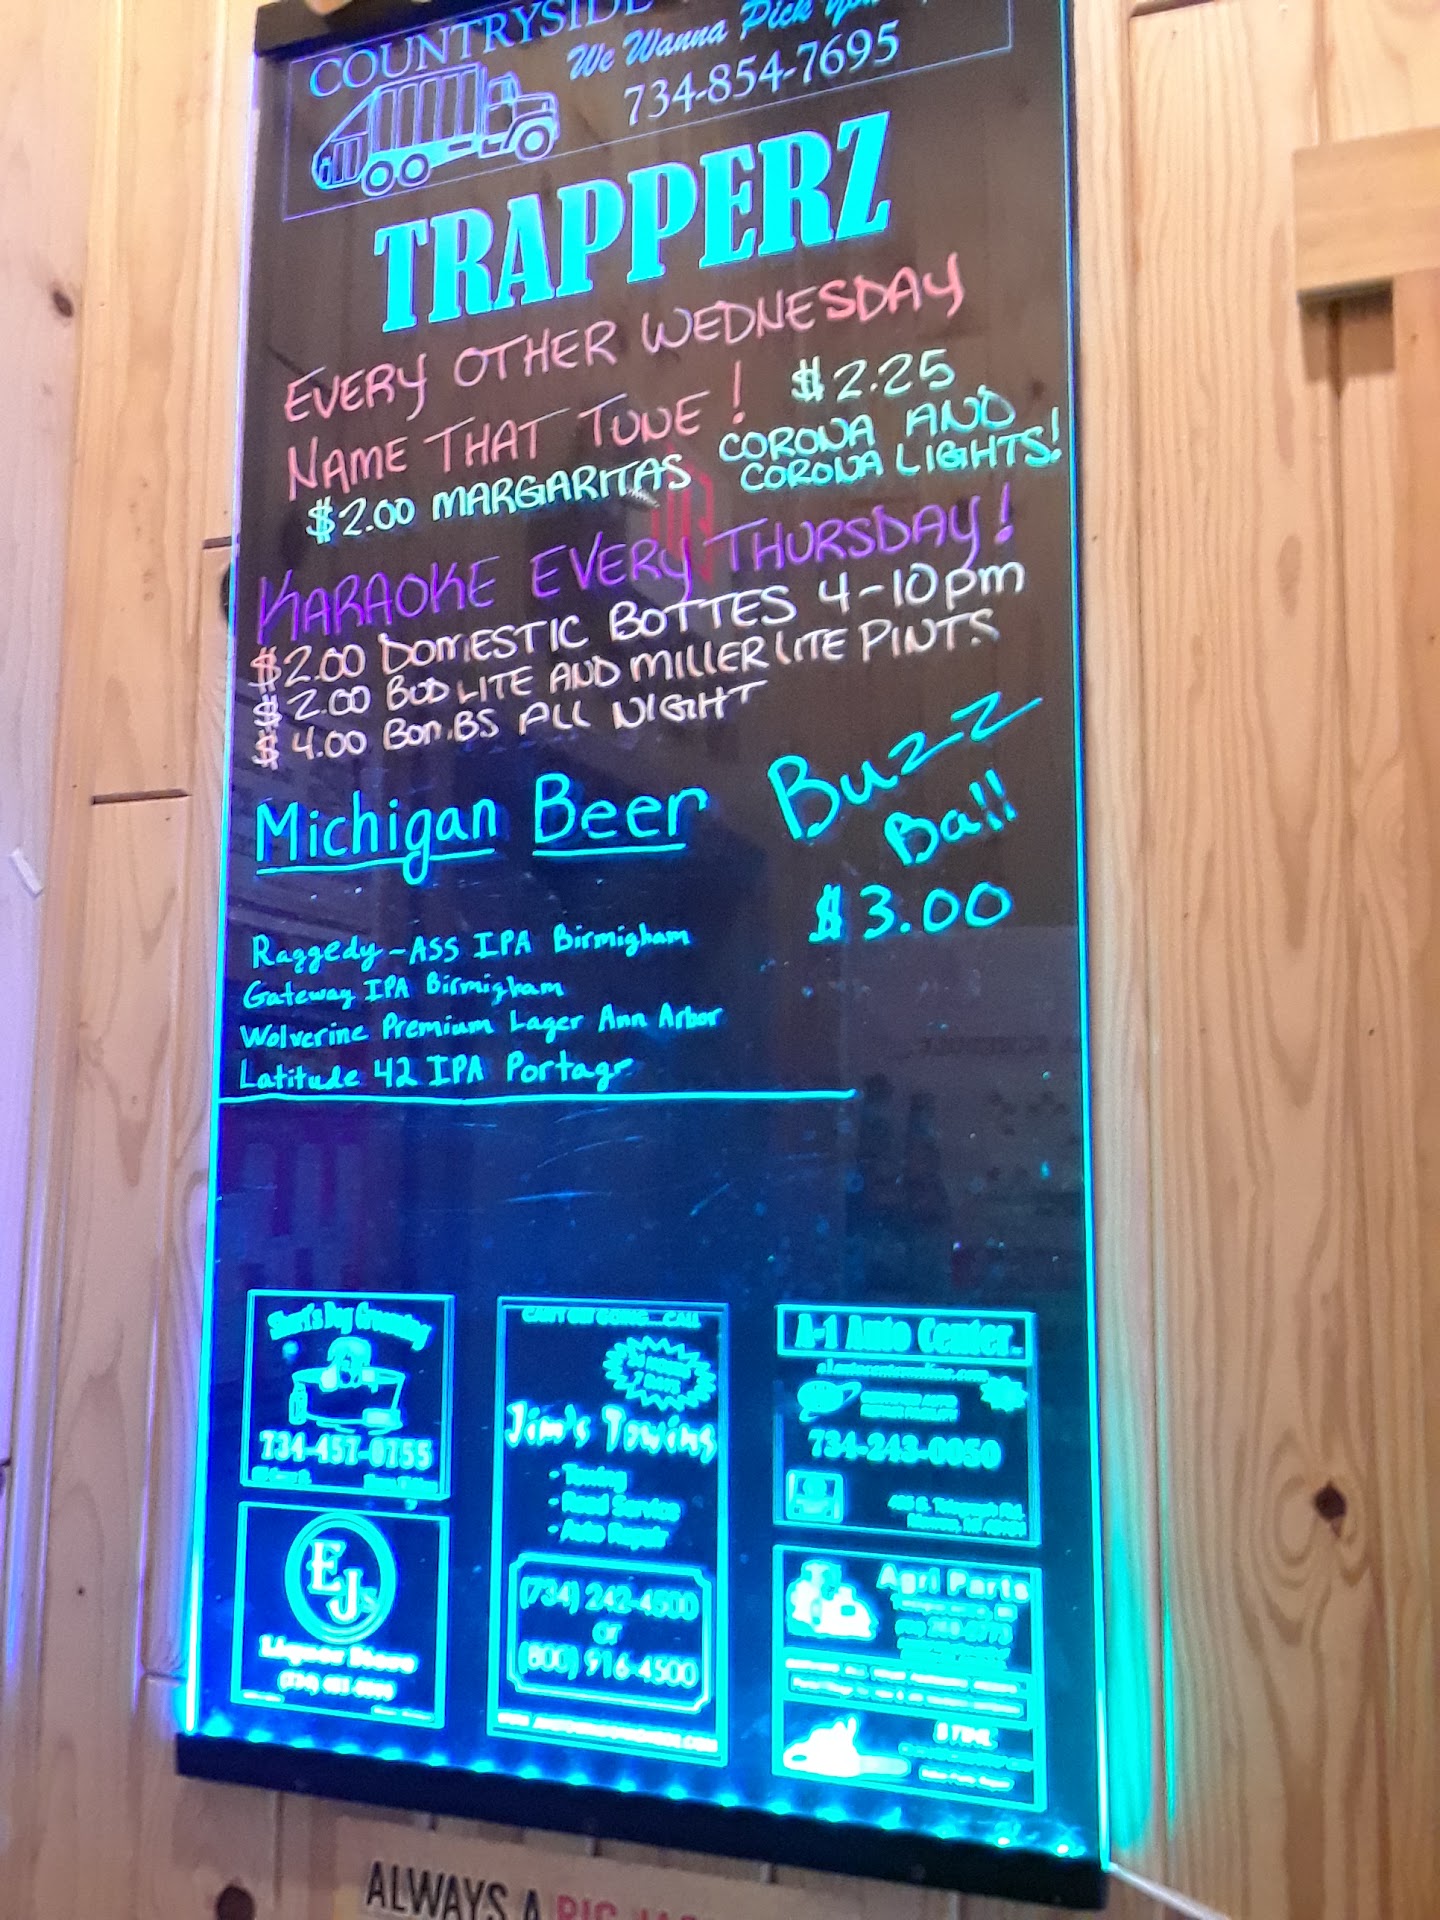 COUNTRYSIDE
We Wanna Pick
734-854-7695
TRAPPERZ
EVERY OTHER WEDNESDAY
NAME THAT TUNE!
$2.00 MARGARITAS
$2.25
CORONA AND
CORONA LIGHTS!
KARAOKE EVERY THURSDAY!
$2.00 DOMESTIC BOTTES 4-10pm
$2.00 BUD LITE AND MILLER LITE PINTS
$4.00 BOMBS ALL NIGHT
Michigan Beer
Buzz
Ball
$3.00
Raggedy-ASS IPA Birmigham
Gateway IPA Birmigham
Wolverine Premium Lager Ann Arbor
Latitude 42 IPA Portage
Dog Grooming
734-457-0755
EJs
Liquor Store
CALL
Jim's Towing
- Towing
- Road Service
- Auto Repair
(734) 242-4500
or
(800) 916-4500
A-1 Auto Center
734-243-0050
Agri Parts
ALWAYS A